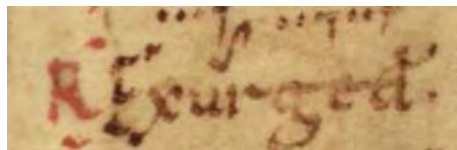 R Exurge d̄.